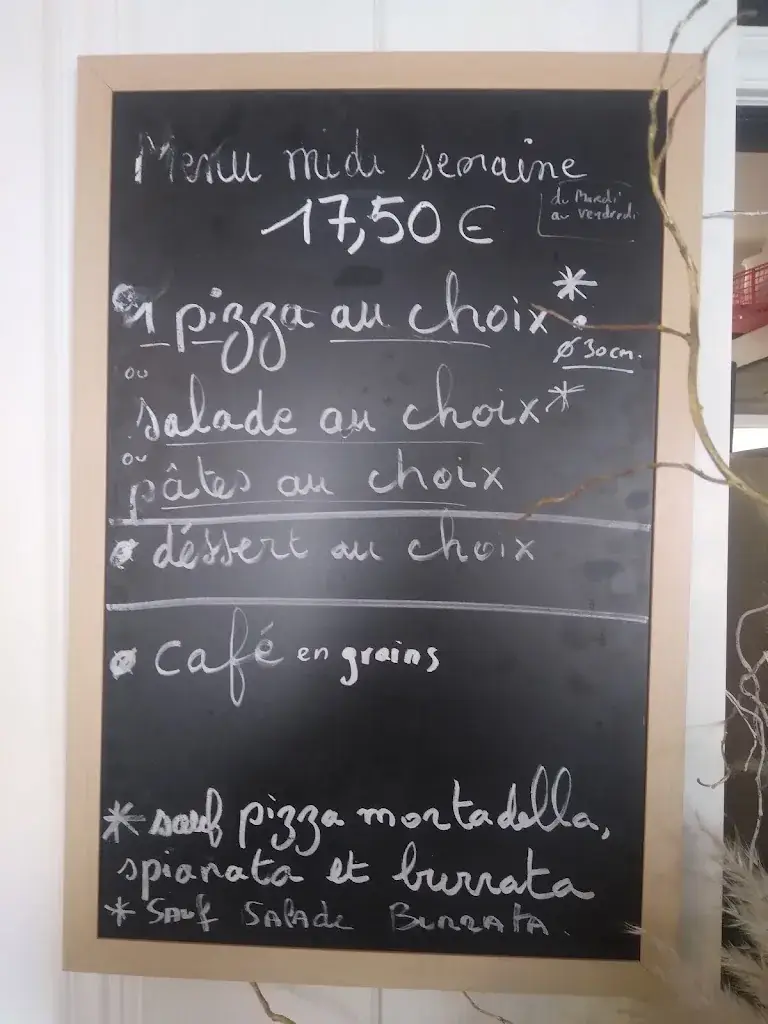 Menu midi semaine
17,50 €
du Mardi
au vendredi
1 pizza au choix *
ø 30 cm.
ou
salade au choix *
ou
pâtes au choix
déssert au choix
café en grains
* sauf pizza mortadella,
spianata et burrata
* SAUF SALADE BURRATA.